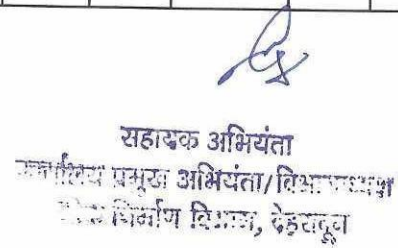 सहायक अभियंता
कार्यालय प्रमुख अभियंता/विभागाध्यक्ष
निर्माण विभाग, देहरादून